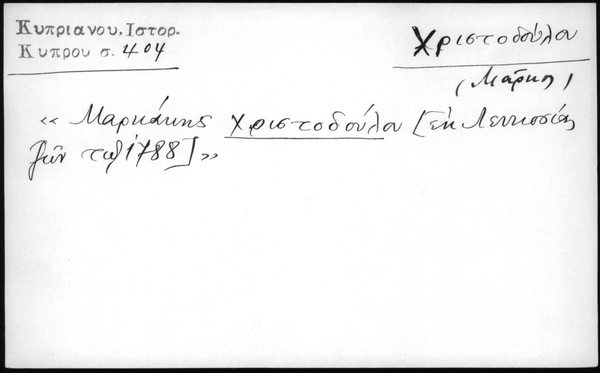 Κυπριανου, Ιστορ.
Κυπρου σ. 404
Χριστοδούλου
(Μάρκος)
« Μαρκάκης Χριστοδούλου [ἐκ Λευκωσίας
ζῶν 1788] »